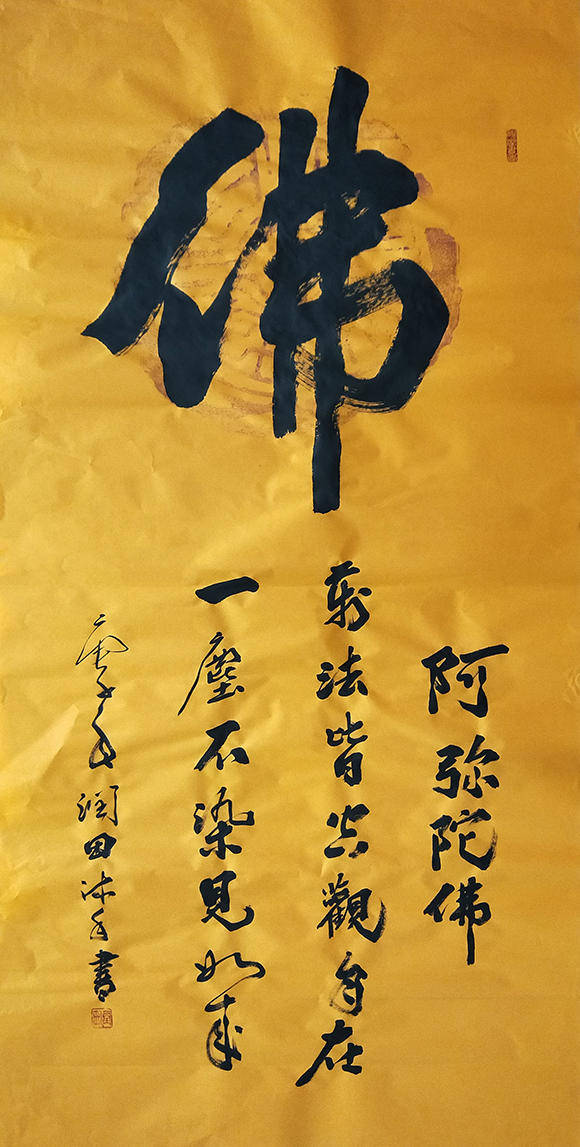 佛
阿弥陀佛
萬法皆空觀自在
一塵不染見如来
庚子年润田沐手書